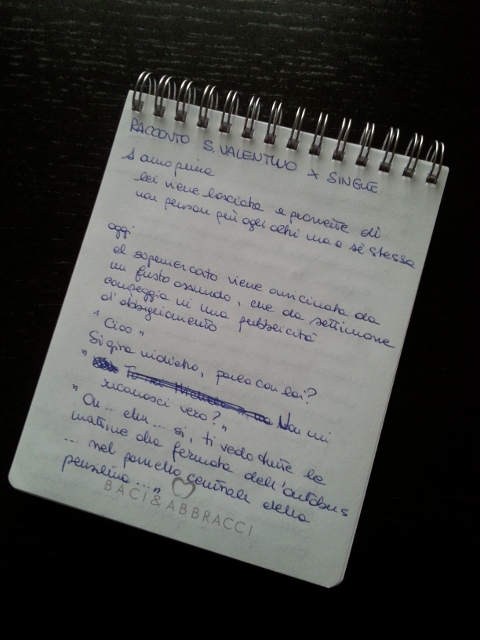 RACCONTO S. VALENTINO X SINGLE
1 anno prima
lei viene lasciata e promette di
non pensare più agli altri ma a sé stessa
oggi
al supermercato viene avvicinata da
un fusto assurdo, che da settimane
campeggia in una pubblicità
d'abbigliamento
"Ciao"
Si gira indietro, parla con lei?
" Non mi
riconosci vero?"
"Oh... ehm... sì, ti vedo tutte le
mattine alla fermata dell'autobus
... nel pannello centrale della
pensilina..."
BACI&ABBRACCI